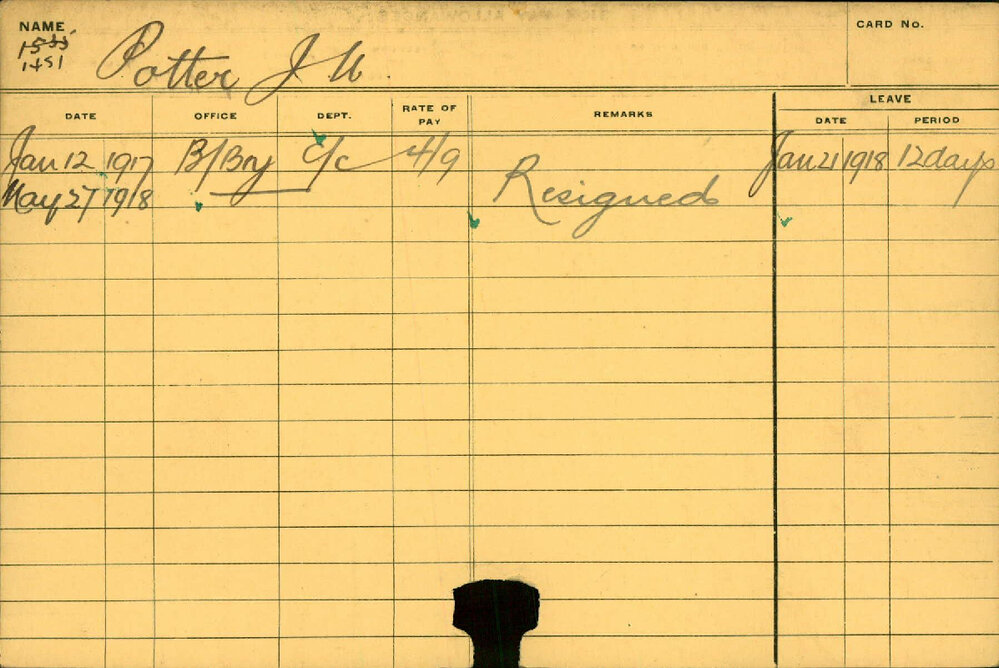 NAME
CARD No.
1451
Potter J
DATE OFFICE DEPT. RATE OF PAY REMARKS LEAVE
DATE PERIOD
Jan 12 1917 B/Bry C/c 4/9 Jan 21 1918 12 days
May 27 1918 Resigned